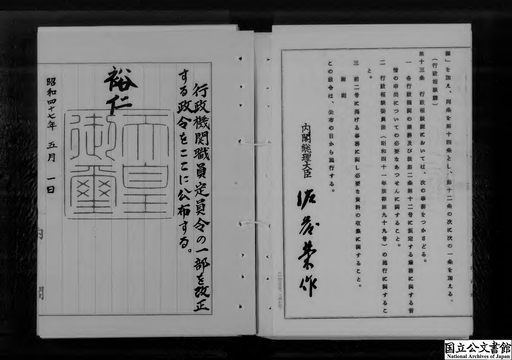 課」を加え、同条を第十四条とし、第十二条の次に次の一条を加える。
(行政相談課)
第十三条 行政相談課においては、次の事務をつかさどる。
一 各行政機関の業務及び第二条第十二号に規定する業務に関する苦
情の申出についての必要なあつせんに関すること。
二 行政相談委員法(昭和四十一年法律第九十九号)の施行に関するこ
と。
三 前二号に掲げる事務に関し必要な資料の収集に関すること。
附則
この政令は、公布の日から施行する。
内閣総理大臣 佐藤榮作
行政機関職員定員令の一部を改正
する政令をここに公布する。
裕仁
天皇
御璽
昭和四十七年 五月 一日
国立公文書館
National Archives of Japan